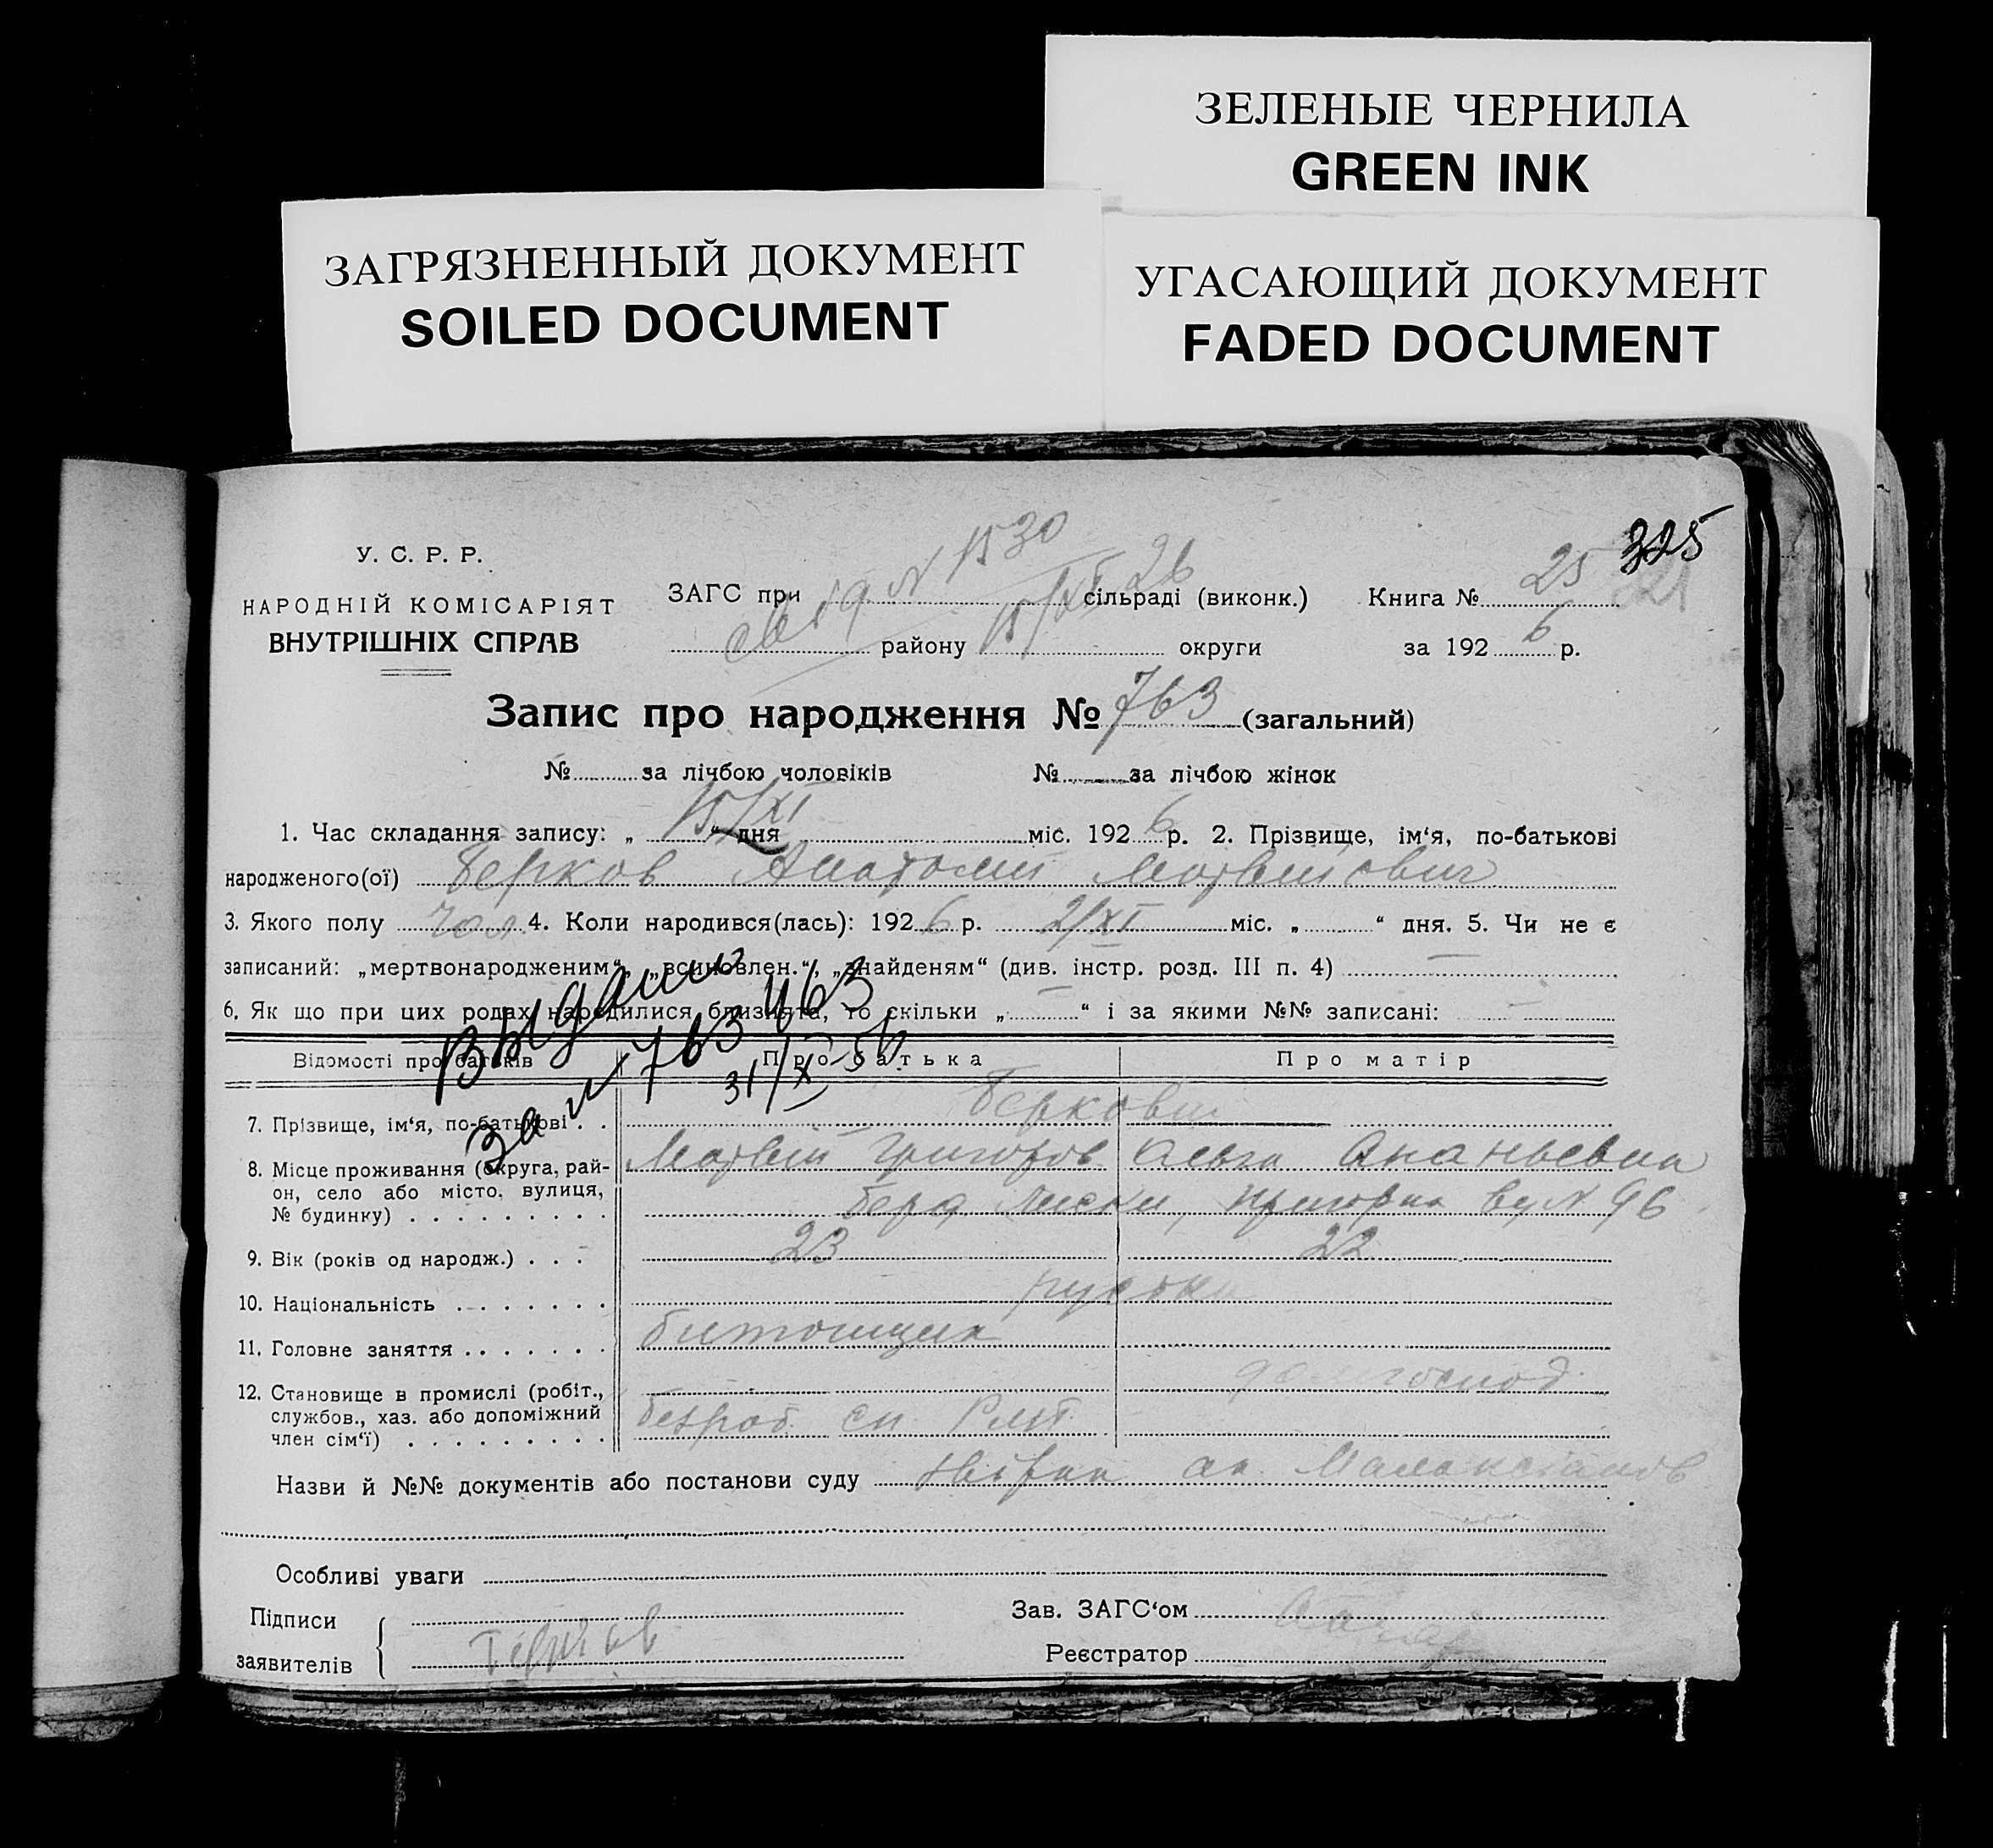 ЗЕЛЕНЫЕ ЧЕРНИЛА
GREEN INK
ЗАГРЯЗНЕННЫЙ ДОКУМЕНТ
SOILED DOCUMENT
УГАСАЮЩИЙ ДОКУМЕНТ
FADED DOCUMENT
325
У. С. Р. Р.
НАРОДНІЙ КОМІСАРІЯТ
ВНУТРІШНІХ СПРАВ
N 1530
15/XI 26
ЗАГС при сільраді (виконк.) Книга № 25
району округи за 1926 р.
Запис про народження № 763 (загальний)
№ за лічбою чоловіків № за лічбою жінок
1. Час складання запису: „ 15/XI “ дня міс. 1926 р. 2. Прізвище, ім‘я, по-батькові
народженого(ої) Анатолій Матвійович
3. Якого полу чол. 4. Коли народився(лась): 1926 р. 2/XI міс. „ “ дня. 5. Чи не є
записаний: „мертвонародженим“, „всиновлен.“, „знайденям“ (див. інстр. розд. III п. 4) —
6. Як що при цих родах народилися близнята, то скільки „ — “ і за якими №№ записані: —
За № 763
31/X-56
Відомості про батьків Про батька Про матір
7. Прізвище, ім‘я, по-батькові . .
8. Місце проживання (округа, рай- Матвій Григоров. Ольга Ананьевна
он, село або місто, вулиця,
№ будинку) . . . . . . . . . Лиски, 96
9. Вік (років од народж.) . . . 23 22
10. Національність . . . . . . .
11. Головне заняття . . . . . . .
12. Становище в промислі (робіт., домогоспод.
службов., хаз. або допоміжний безроб.
член сім‘ї) . . . . . . . . .
Назви й №№ документів або постанови суду
Особливі уваги
Підписи Зав. ЗАГС‘ом
заявителів Реєстратор